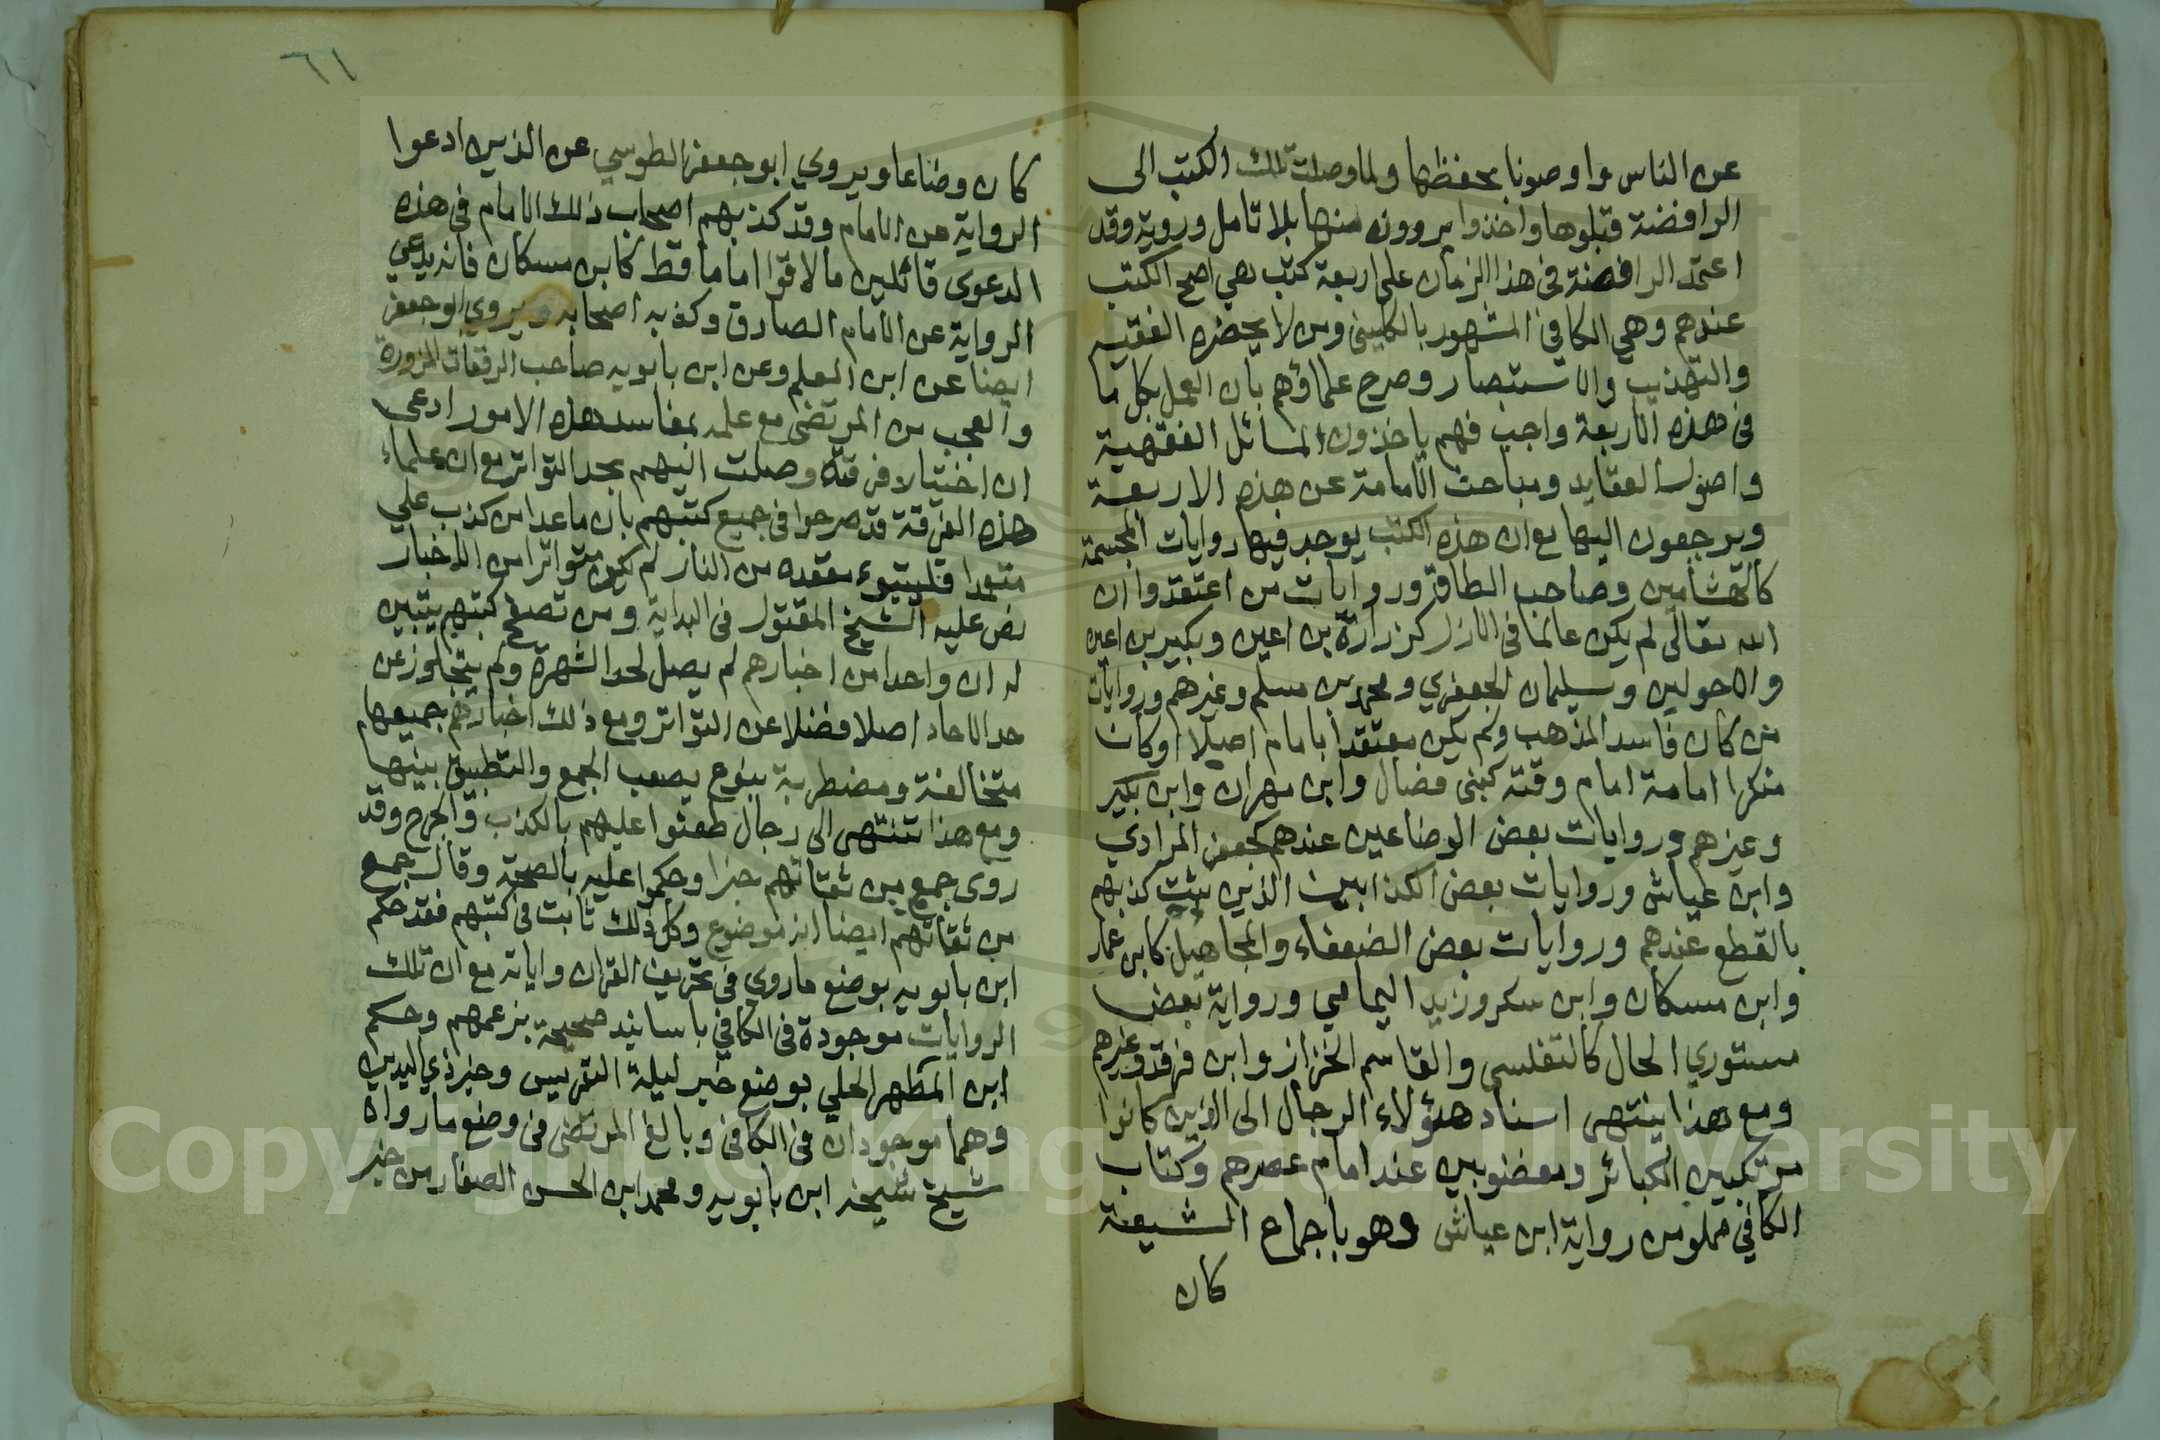 عن الناس واوصونا بحفظها ولما وصلت تلك الكتب الى
الرافضة قبلوها واخذوا يروون منها بلا تامل وروية وقد
اعتمد الرافضة فى هذا الزمان على اربعة كتب هي اصح الكتب
عندهم وهي الكافى المشهور بالكلينى ومن لا يحضره الفقيه
والتهذيب والاستبصار وصرح علماؤهم بان العمل بكل ما
فى هذه الاربعة واجب فهم ياخذون المسائل الفقهية
واصول العقايد ومباحث الامامة عن هذه الاربعة
ويرجعون اليها مع ان هذه الكتب يوجد فيها روايات المجسمة
كالهشامين وصاحب الطاق وروايات من اعتقدوا ان
الله تعالى لم يكن عالما فى الازل كزرارة بن اعين وبكير بن اعين
والاحولين وسليمان الجعفري ومحمد بن مسلم وغيرهم وروايات
من كان فاسد المذهب ولم يكن معتقدا بامام اصلا او كان
منكرا امامة امام وقته كبنى فضال وابن مهران وابن بكير
وغيرهم وروايات بعض الوضاعين عندهم كجعفر المرادي
وابن عياش وروايات بعض الكذابين الذين يثبت كذبهم
بالقطع عندهم وروايات بعض الضعفاء والمجاهيل كابن عمار
وابن مسكان وابن سكر وزيد اليمامي ورواية بعض
مستوري الحال كالتفلسي والقاسم الخزاز وابن فرقد وغيرهم
ومع هذا ينتهى اسناد هؤلاء الرجال الى الذين كانوا
مرتكبين الكبائر ومغضوبين عند امام عصرهم وكتاب
الكافي مملو من رواية ابن عياش وهو باجماع الشيعة
كان
٦١
كان وضاعا ويروي ابو جعفر الطوسي عن الذين ادعوا
الرواية عن الامام وقد كذبهم اصحاب ذلك الامام فى هذه
الدعوى قائلين ما لاقوا اماما قط كابن مسكان فانه يدعي
الرواية عن الامام الصادق وكذبه اصحابه ويروي ابو جعفر
ايضا عن ابن المعلم وعن ابن بابويه صاحب الرقعات المزورة
والعجب من المرتضى مع علمه بمفاسد هذه الامور ادعى
ان اخبار فرقته وصلت اليهم بحد التواتر مع ان علماء
هذه الفرقة قد صرحوا فى جميع كتبهم بان ما عدا من كذب علي
متعمدا فليتبوء مقعده من النار لم يكن متواترا من الاخبار
نص عليه الشيخ المقتول فى البداية ومن تصفح كتبهم يتبين
له ان واحدا من اخبارهم لم يصل لحد الشهرة ولم يتجاوز عن
حد الاحاد اصلا فضلا عن التواتر ومع ذلك اخبارهم جميعها
متخالفة ومضطربة بنوع يصعب الجمع والتطبيق بينها
ومع هذا تنتهى الى رجال طعنوا عليهم بالكذب والجرح وقد
روى جمع من ثقاتهم خبرا وحكموا عليه بالصحة وقال جمع
من ثقاتهم ايضا انه موضوع وكل ذلك ثابت فى كتبهم فقد حكم
ابن بابويه بوضع ما روي فى تحريف القران واياته مع ان تلك
الروايات موجودة فى الكافي باسانيد صحيحة بزعمهم وحكم
ابن المطهر الحلي بوضع خبر ليلة التعريس وخبر ذي اليدين
وهما موجودان فى الكافى وبالغ المرتضى فى وضع ما رواه
شيخ شيخه ابن بابويه ومحمد ابن الحسن الصفار من خبر
Copyright © King Saud University